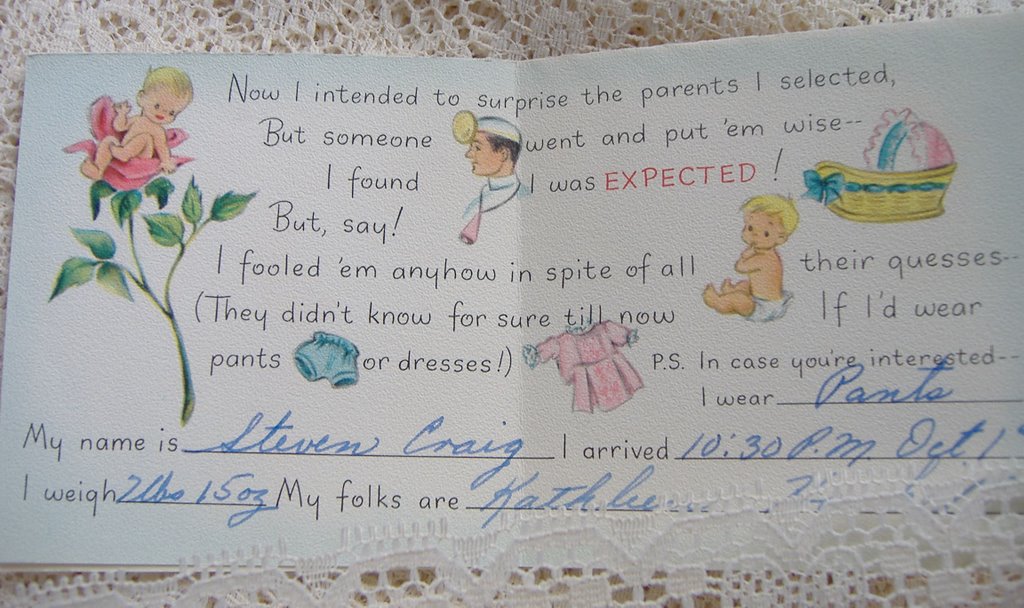 Now I intended to surprise the parents I selected,
But someone went and put 'em wise--
I found I was EXPECTED!
But, say!
I fooled 'em anyhow in spite of all their guesses--
(They didn't know for sure till now If I'd wear
pants or dresses!) P.S. In case you're interested--
I wear Pants
My name is Steven Craig I arrived 10:30 P.M. Oct
I weigh 7lbs 15oz My folks are Kathleen